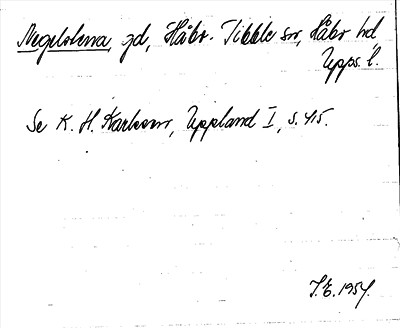 Negelstena, gd, Håbo-Tibble sn, Håbo hd
Upps. l.
Se K. H. Karlsson, Uppland I, s. 415.
J. E. 1954.